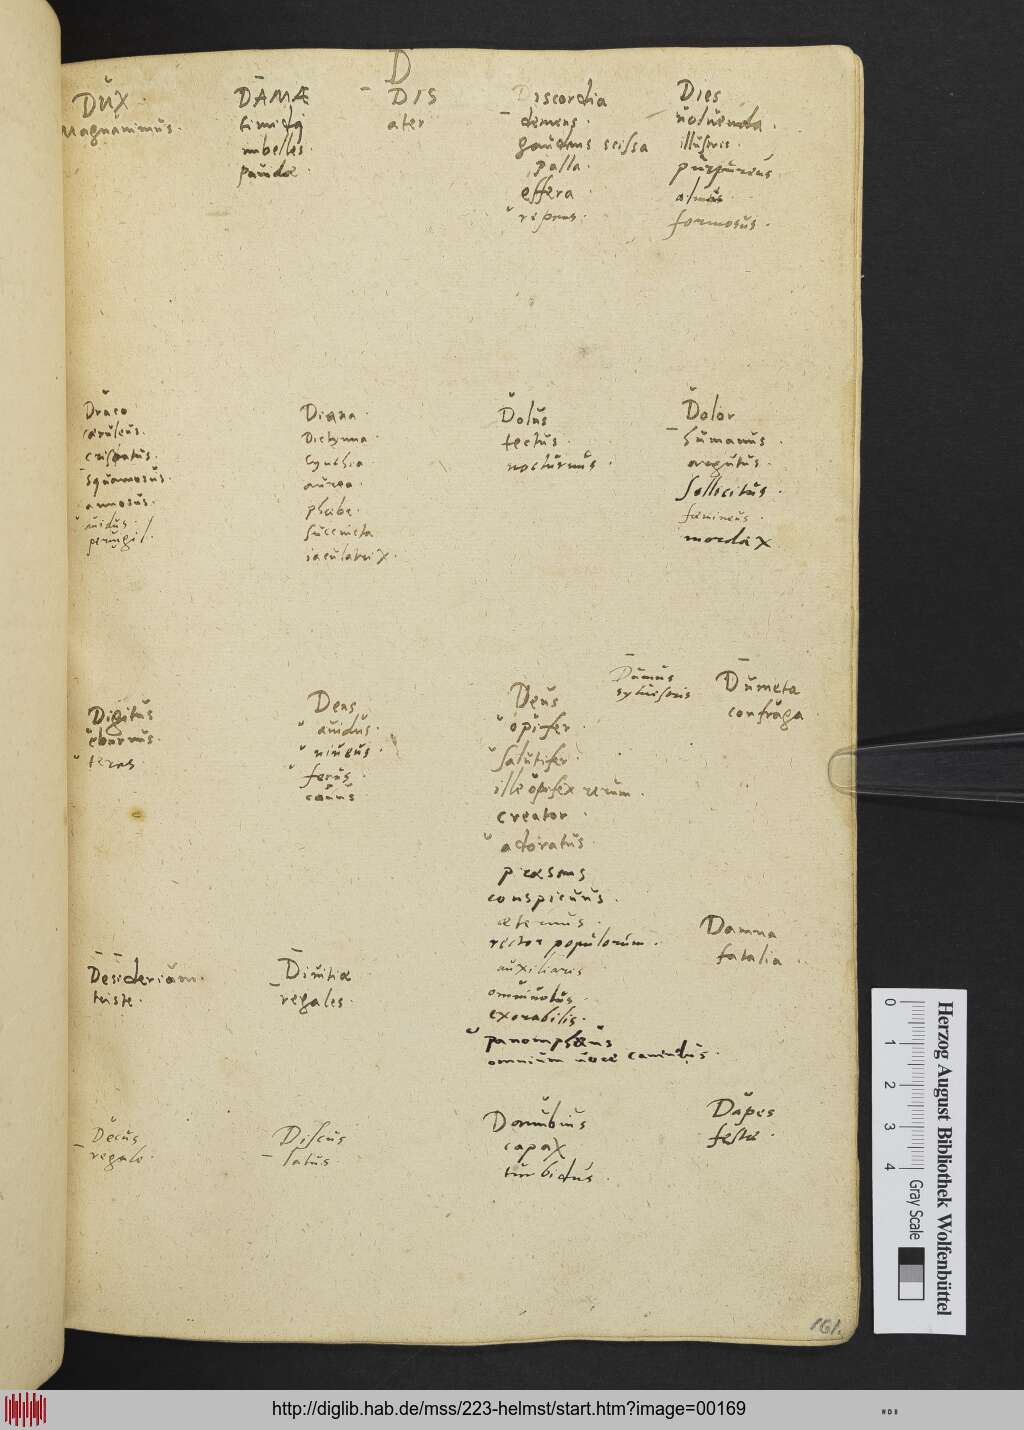 D
DUX
Magnanimus.
DAMÆ
timidę
imbelles.
pauidæ.
DIS
ater
Discordia
demens.
gaudens scissa
palla.
effera.
repens.
Dies
uoluenda.
purpureus
almus
formosus.
Draco
cæruleus.
crispatus.
squamosus.
annosus.
auidus.
peruigil.
Diana.
Dictynna.
Cynthia.
aurea.
phæbe.
succincta
iaculatrix.
Dolus
tectus.
nocturnus.
Dolor
humanus.
argutus.
sollicitus.
fæmineus.
mordax
Digitus
eburnus.
teres.
Dens
auidus.
niueus.
ferus.
cauus
Deus
opifer.
salutifer.
ille opifex rerum.
creator.
adoratus.
præsens
conspicuus.
æternus.
rector populorum.
auxiliaris
exorabilis.
panomphæus
omnium uoce canendus.
Dumus
syluestris
Dumeta
confraga
Desiderium.
triste.
Diuitiæ
regales.
Damna
fatalia.
Decus
regale.
Discus
latus.
Danubius
capax
turbidus.
Dapes
festæ.
161.
0 1 2 3 4
Gray Scale
Herzog August Bibliothek Wolfenbüttel
http://diglib.hab.de/mss/223-helmst/start.htm?image=00169
WDB